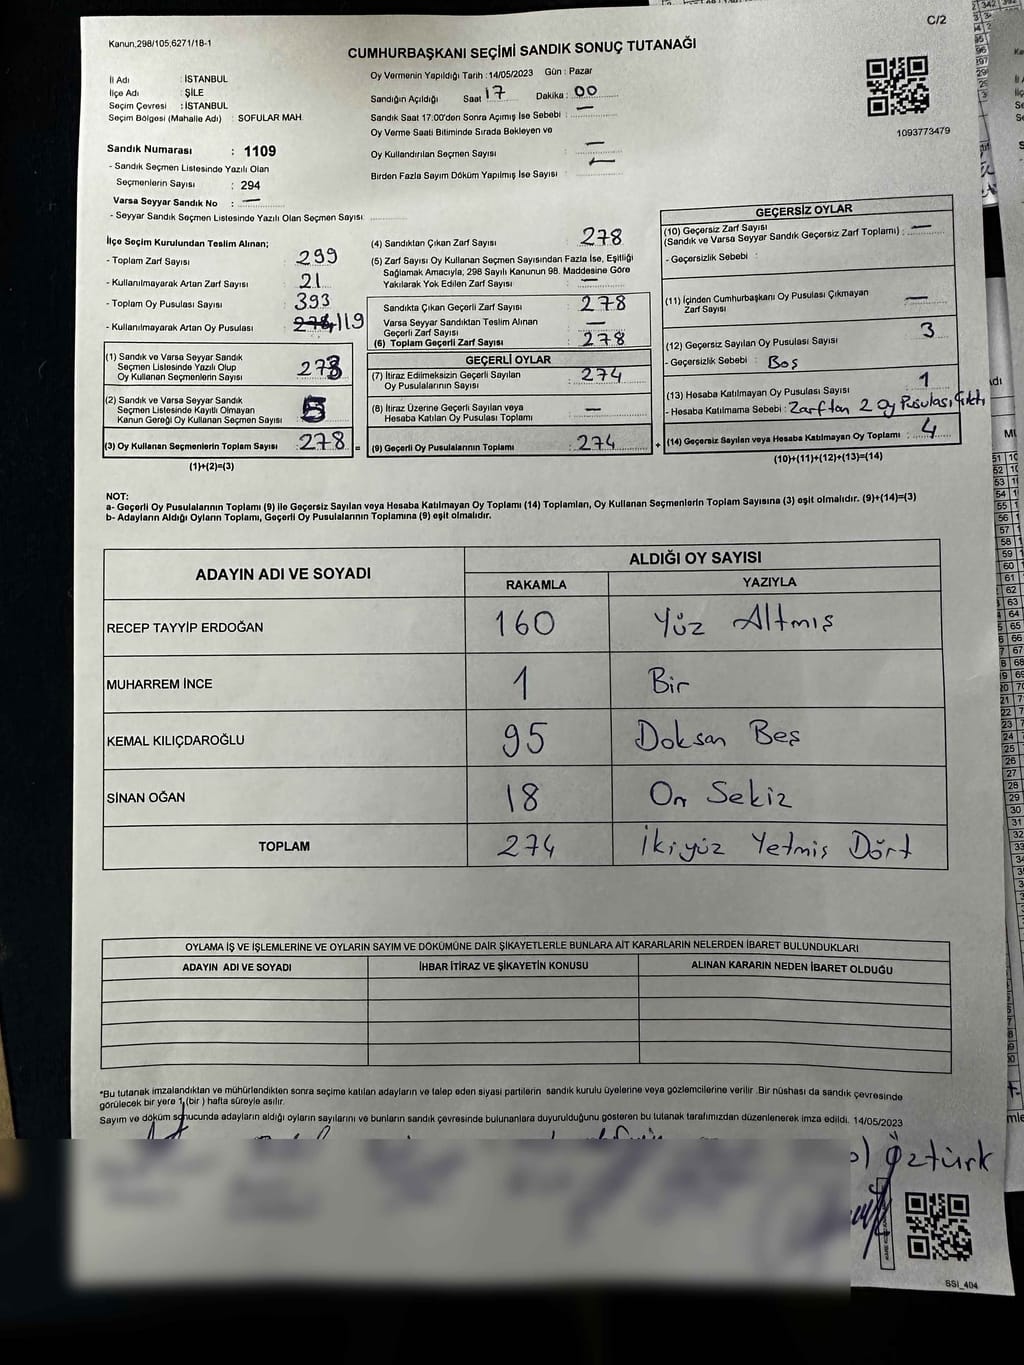 C/2
Kanun,298/105,6271/18-1
CUMHURBAŞKANI SEÇİMİ SANDIK SONUÇ TUTANAĞI
İl Adı : İSTANBUL
İlçe Adı : ŞİLE
Seçim Çevresi : İSTANBUL
Seçim Bölgesi (Mahalle Adı) : SOFULAR MAH.
Oy Vermenin Yapıldığı Tarih : 14/05/2023 Gün : Pazar
Sandığın Açıldığı Saat 17 Dakika : 00
Sandık Saat 17:00'den Sonra Açımış İse Sebebi : —
Oy Verme Saati Bitiminde Sırada Bekleyen ve
Oy Kullandırılan Seçmen Sayısı —
Birden Fazla Sayım Döküm Yapılmış İse Sayısı : —
1093773479
Sandık Numarası : 1109
- Sandık Seçmen Listesinde Yazılı Olan
Seçmenlerin Sayısı : 294
Varsa Seyyar Sandık No : —
- Seyyar Sandık Seçmen Listesinde Yazılı Olan Seçmen Sayısı
İlçe Seçim Kurulundan Teslim Alınan;
- Toplam Zarf Sayısı : 299
- Kullanılmayarak Artan Zarf Sayısı : 21
- Toplam Oy Pusulası Sayısı : 393
- Kullanılmayarak Artan Oy Pusulası : 119
(1) Sandık ve Varsa Seyyar Sandık
Seçmen Listesinde Yazılı Olup
Oy Kullanan Seçmenlerin Sayısı : 273
(2) Sandık ve Varsa Seyyar Sandık
Seçmen Listesinde Kayıtlı Olmayan
Kanun Gereği Oy Kullanan Seçmen Sayısı : 5
(3) Oy Kullanan Seçmenlerin Toplam Sayısı : 278
(1)+(2)=(3)
(4) Sandıktan Çıkan Zarf Sayısı : 278
(5) Zarf Sayısı Oy Kullanan Seçmen Sayısından Fazla İse, Eşitliği
Sağlamak Amacıyla; 298 Sayılı Kanunun 98. Maddesine Göre
Yakılarak Yok Edilen Zarf Sayısı : —
Sandıkta Çıkan Geçerli Zarf Sayısı : 278
Varsa Seyyar Sandıktan Teslim Alınan
Geçerli Zarf Sayısı : —
(6) Toplam Geçerli Zarf Sayısı : 278
GEÇERLİ OYLAR
(7) İtiraz Edilmeksizin Geçerli Sayılan
Oy Pusulalarının Sayısı : 274
(8) İtiraz Üzerine Geçerli Sayılan veya
Hesaba Katılan Oy Pusulası Toplamı : —
(9) Geçerli Oy Pusulalarının Toplamı : 274
GEÇERSİZ OYLAR
(10) Geçersiz Zarf Sayısı
(Sandık ve Varsa Seyyar Sandık Geçersiz Zarf Toplamı) : —
- Geçersizlik Sebebi :
(11) İçinden Cumhurbaşkanı Oy Pusulası Çıkmayan
Zarf Sayısı : —
(12) Geçersiz Sayılan Oy Pusulası Sayısı 3
- Geçersizlik Sebebi : Boş
(13) Hesaba Katılmayan Oy Pusulası Sayısı 1
- Hesaba Katılmama Sebebi : Zarftan 2 Oy Pusulası Çıktı
(14) Geçersiz Sayılan veya Hesaba Katılmayan Oy Toplamı : 4
(10)+(11)+(12)+(13)=(14)
NOT:
a- Geçerli Oy Pusulalarının Toplamı (9) ile Geçersiz Sayılan veya Hesaba Katılmayan Oy Toplamı (14) Toplamları, Oy Kullanan Seçmenlerin Toplam Sayısına (3) eşit olmalıdır. (9)+(14)=(3)
b- Adayların Aldığı Oyların Toplamı, Geçerli Oy Pusulalarının Toplamına (9) eşit olmalıdır.
ADAYIN ADI VE SOYADI
ALDIĞI OY SAYISI
RAKAMLA YAZIYLA
RECEP TAYYİP ERDOĞAN 160 Yüz Altmış
MUHARREM İNCE 1 Bir
KEMAL KILIÇDAROĞLU 95 Doksan Beş
SİNAN OĞAN 18 On Sekiz
TOPLAM 274 İkiyüz Yetmiş Dört
OYLAMA İŞ VE İŞLEMLERİNE VE OYLARIN SAYIM VE DÖKÜMÜNE DAİR ŞİKAYETLERLE BUNLARA AİT KARARLARIN NELERDEN İBARET BULUNDUKLARI
ADAYIN ADI VE SOYADI İHBAR İTİRAZ VE ŞİKAYETİN KONUSU ALINAN KARARIN NEDEN İBARET OLDUĞU
*Bu tutanak imzalandıktan ve mühürlendikten sonra seçime katılan adayların ve talep eden siyasi partilerin sandık kurulu üyelerine veya gözlemcilerine verilir .Bir nüshası da sandık çevresinde
görülecek bir yere 1 (bir ) hafta süreyle asılır.
Sayım ve döküm sonucunda adayların aldığı oyların sayılarını ve bunların sandık çevresinde bulunanlara duyurulduğunu gösteren bu tutanak tarafımızdan düzenlenerek imza edildi. 14/05/2023
Öztürk
SSİ_404